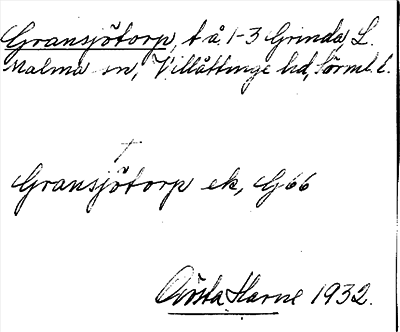 Gransjötorp, t å. 1-3 Grinda, L.
Malma sn, Villåttinge hd, Sörml. l.
†
Gransjötorp ek, G66
Gösta Harne 1932.